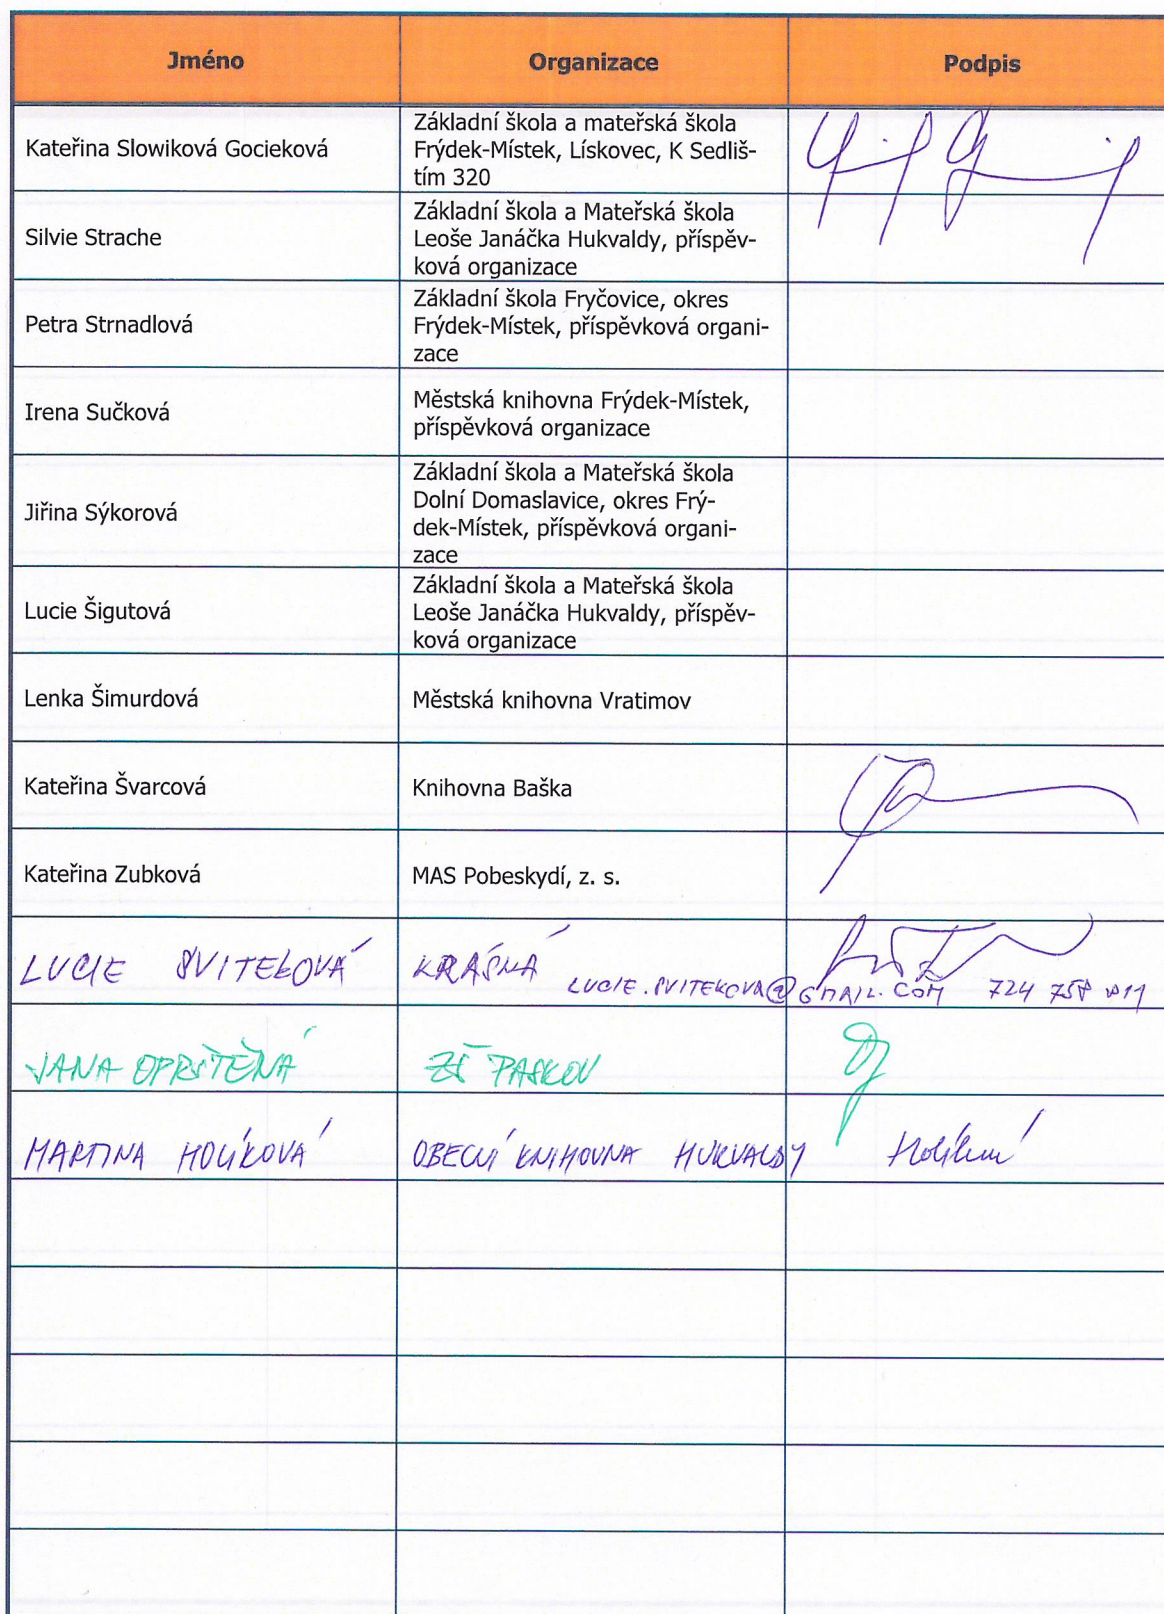 Jméno Organizace Podpis
Kateřina Slowiková Gocieková
Základní škola a mateřská škola
Frýdek-Místek, Lískovec, K Sedliš-
tím 320
Silvie Strache
Základní škola a Mateřská škola
Leoše Janáčka Hukvaldy, příspěv-
ková organizace
Petra Strnadlová
Základní škola Fryčovice, okres
Frýdek-Místek, příspěvková organi-
zace
Irena Sučková
Městská knihovna Frýdek-Místek,
příspěvková organizace
Jiřina Sýkorová
Základní škola a Mateřská škola
Dolní Domaslavice, okres Frý-
dek-Místek, příspěvková organi-
zace
Lucie Šigutová
Základní škola a Mateřská škola
Leoše Janáčka Hukvaldy, příspěv-
ková organizace
Lenka Šimurdová
Městská knihovna Vratimov
Kateřina Švarcová
Knihovna Baška
Kateřina Zubková
MAS Pobeskydí, z. s.
LUCIE SVITEKOVÁ KRÁSNÁ
LUCIE.SVITEKOVA@GMAIL.COM 724
JANA OPRŠTĚNÁ ZŠ PASKOV
MARTINA HOLÍKOVÁ OBECNÍ KNIHOVNA HUKVALDY